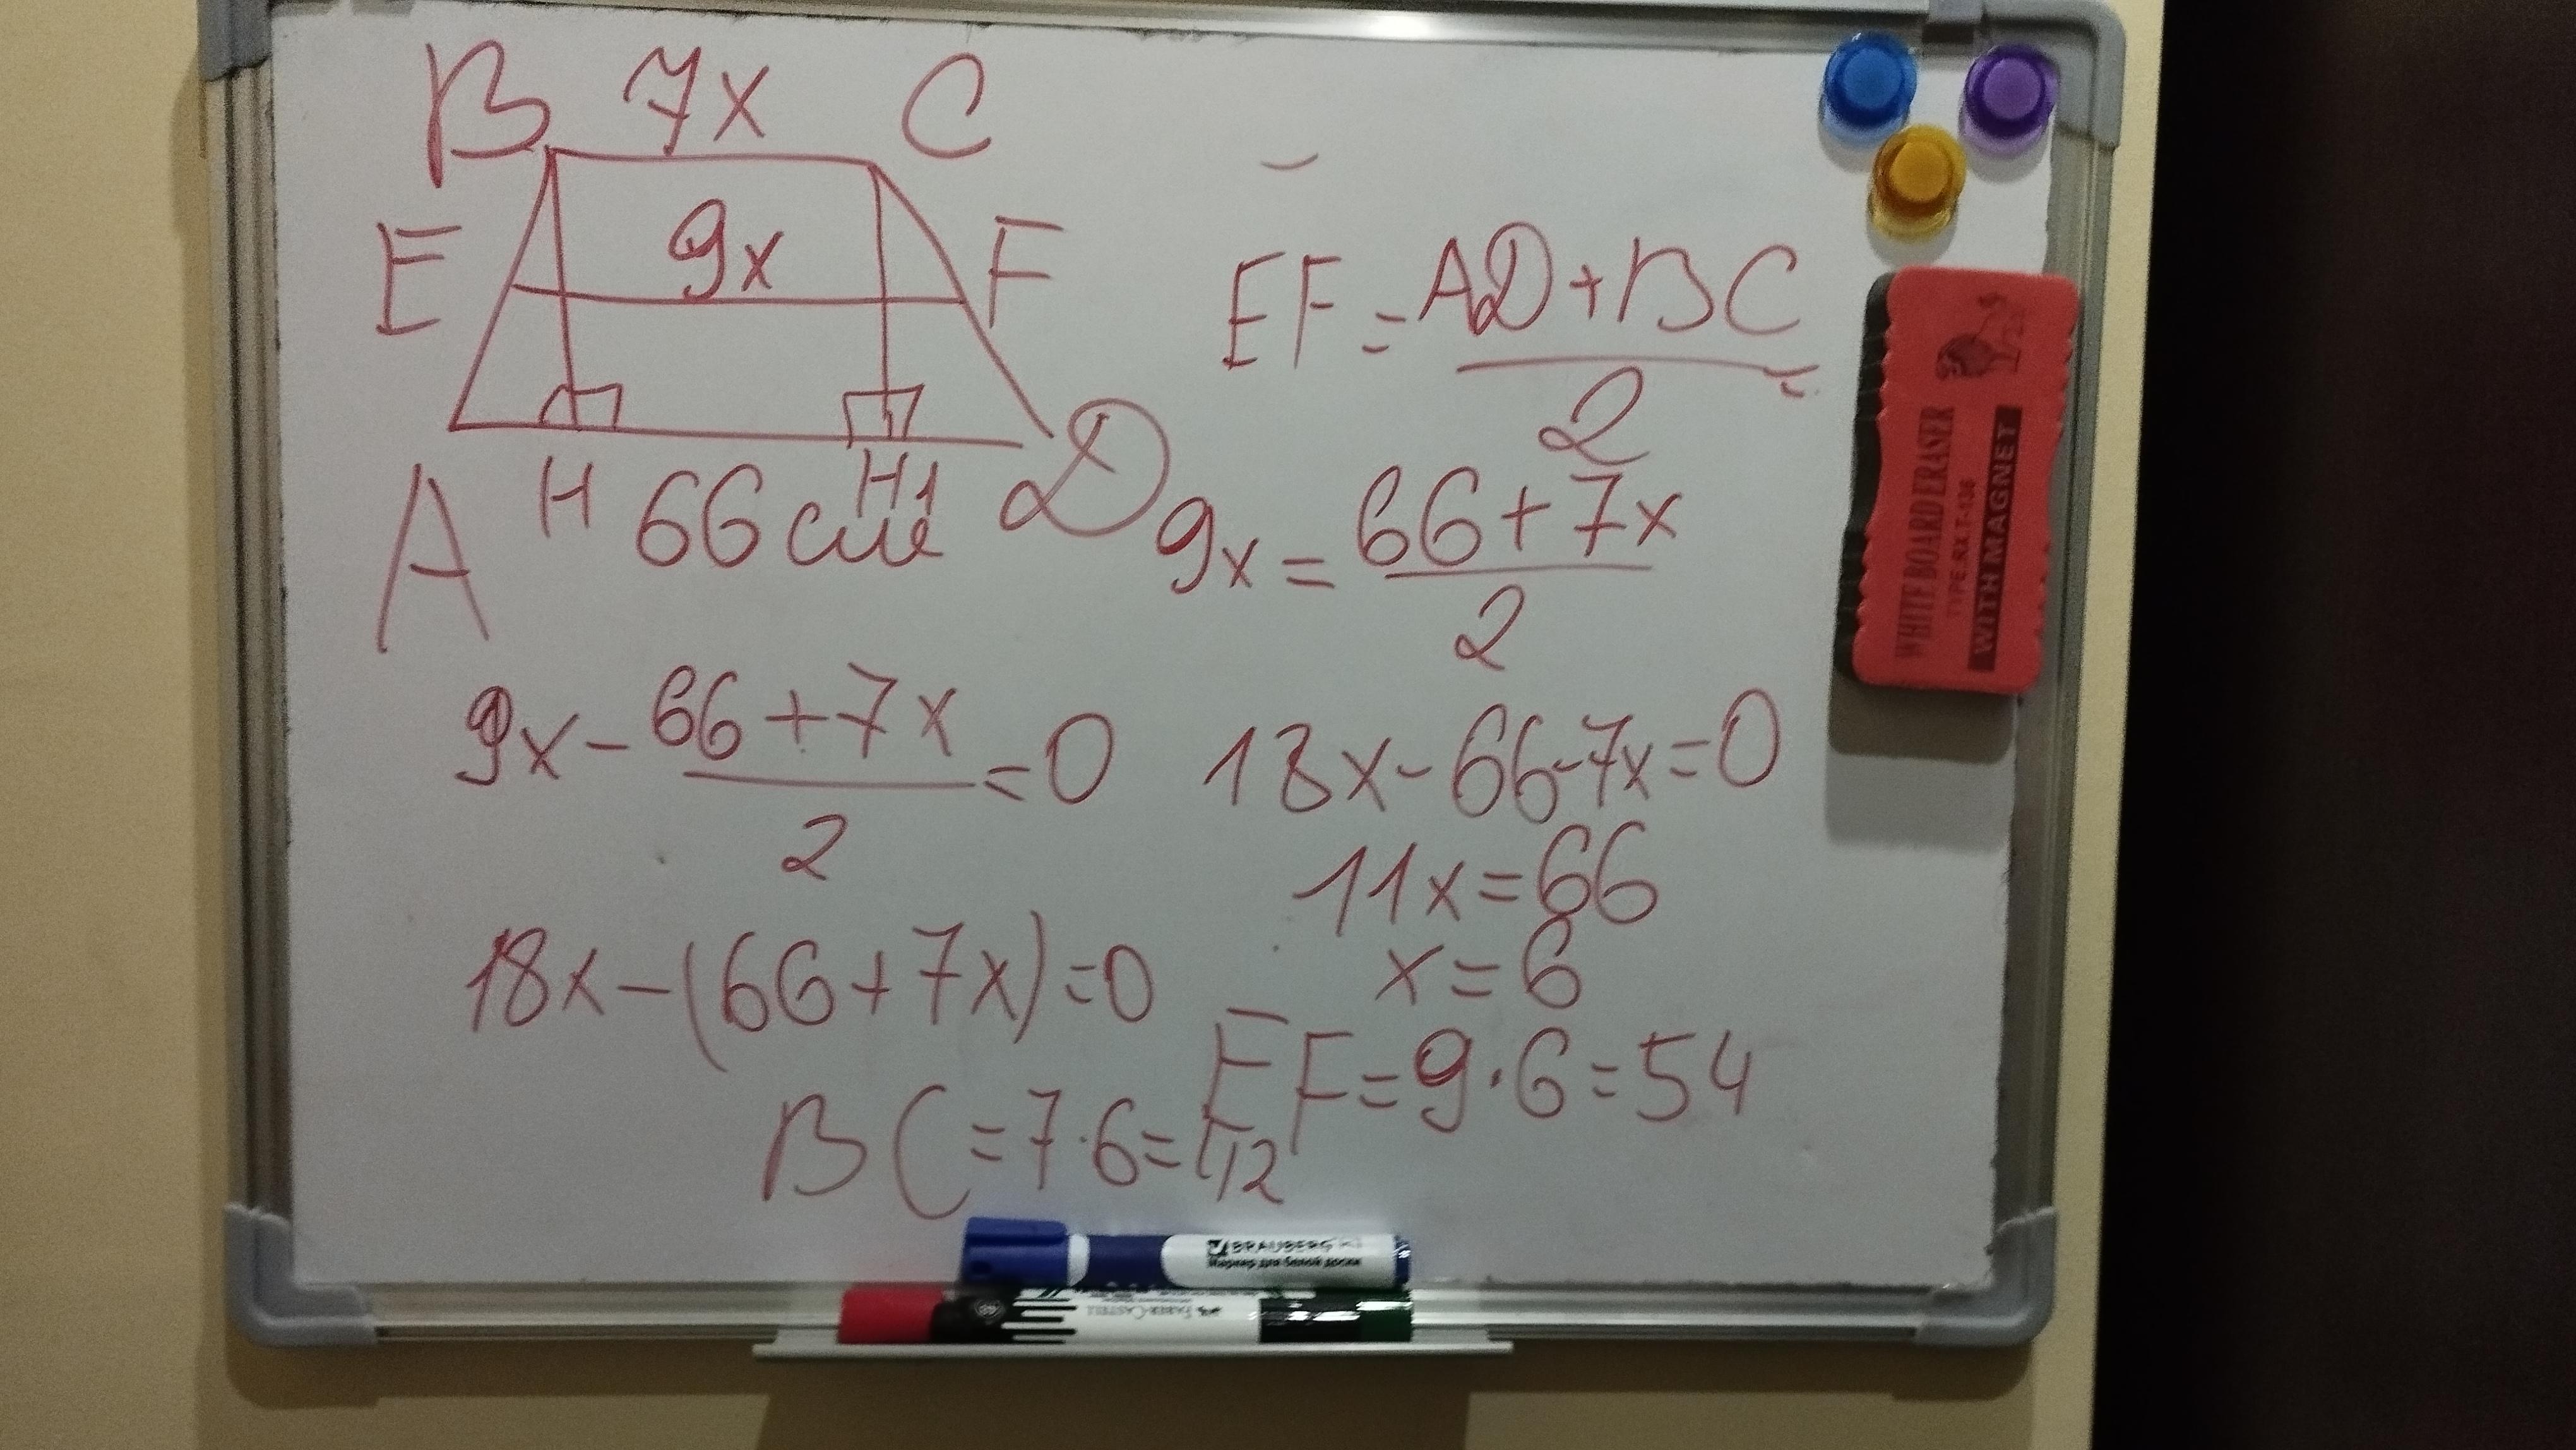 B 7x C
E 9x F
EF = AD+BC / 2
A H 66 см H1 D
9x = 66+7x / 2
9x - 66+7x / 2 = 0
18x - 66 - 7x = 0
11x = 66
18x - (66+7x) = 0
x = 6
EF = 9·6 = 54
BC = 7·6 = 42
WHITE BOARD ERASER
TYPE.RX.T-136
WITH MAGNET
BRAUBERG
Маркер для белой доски
FABER-CASTELL